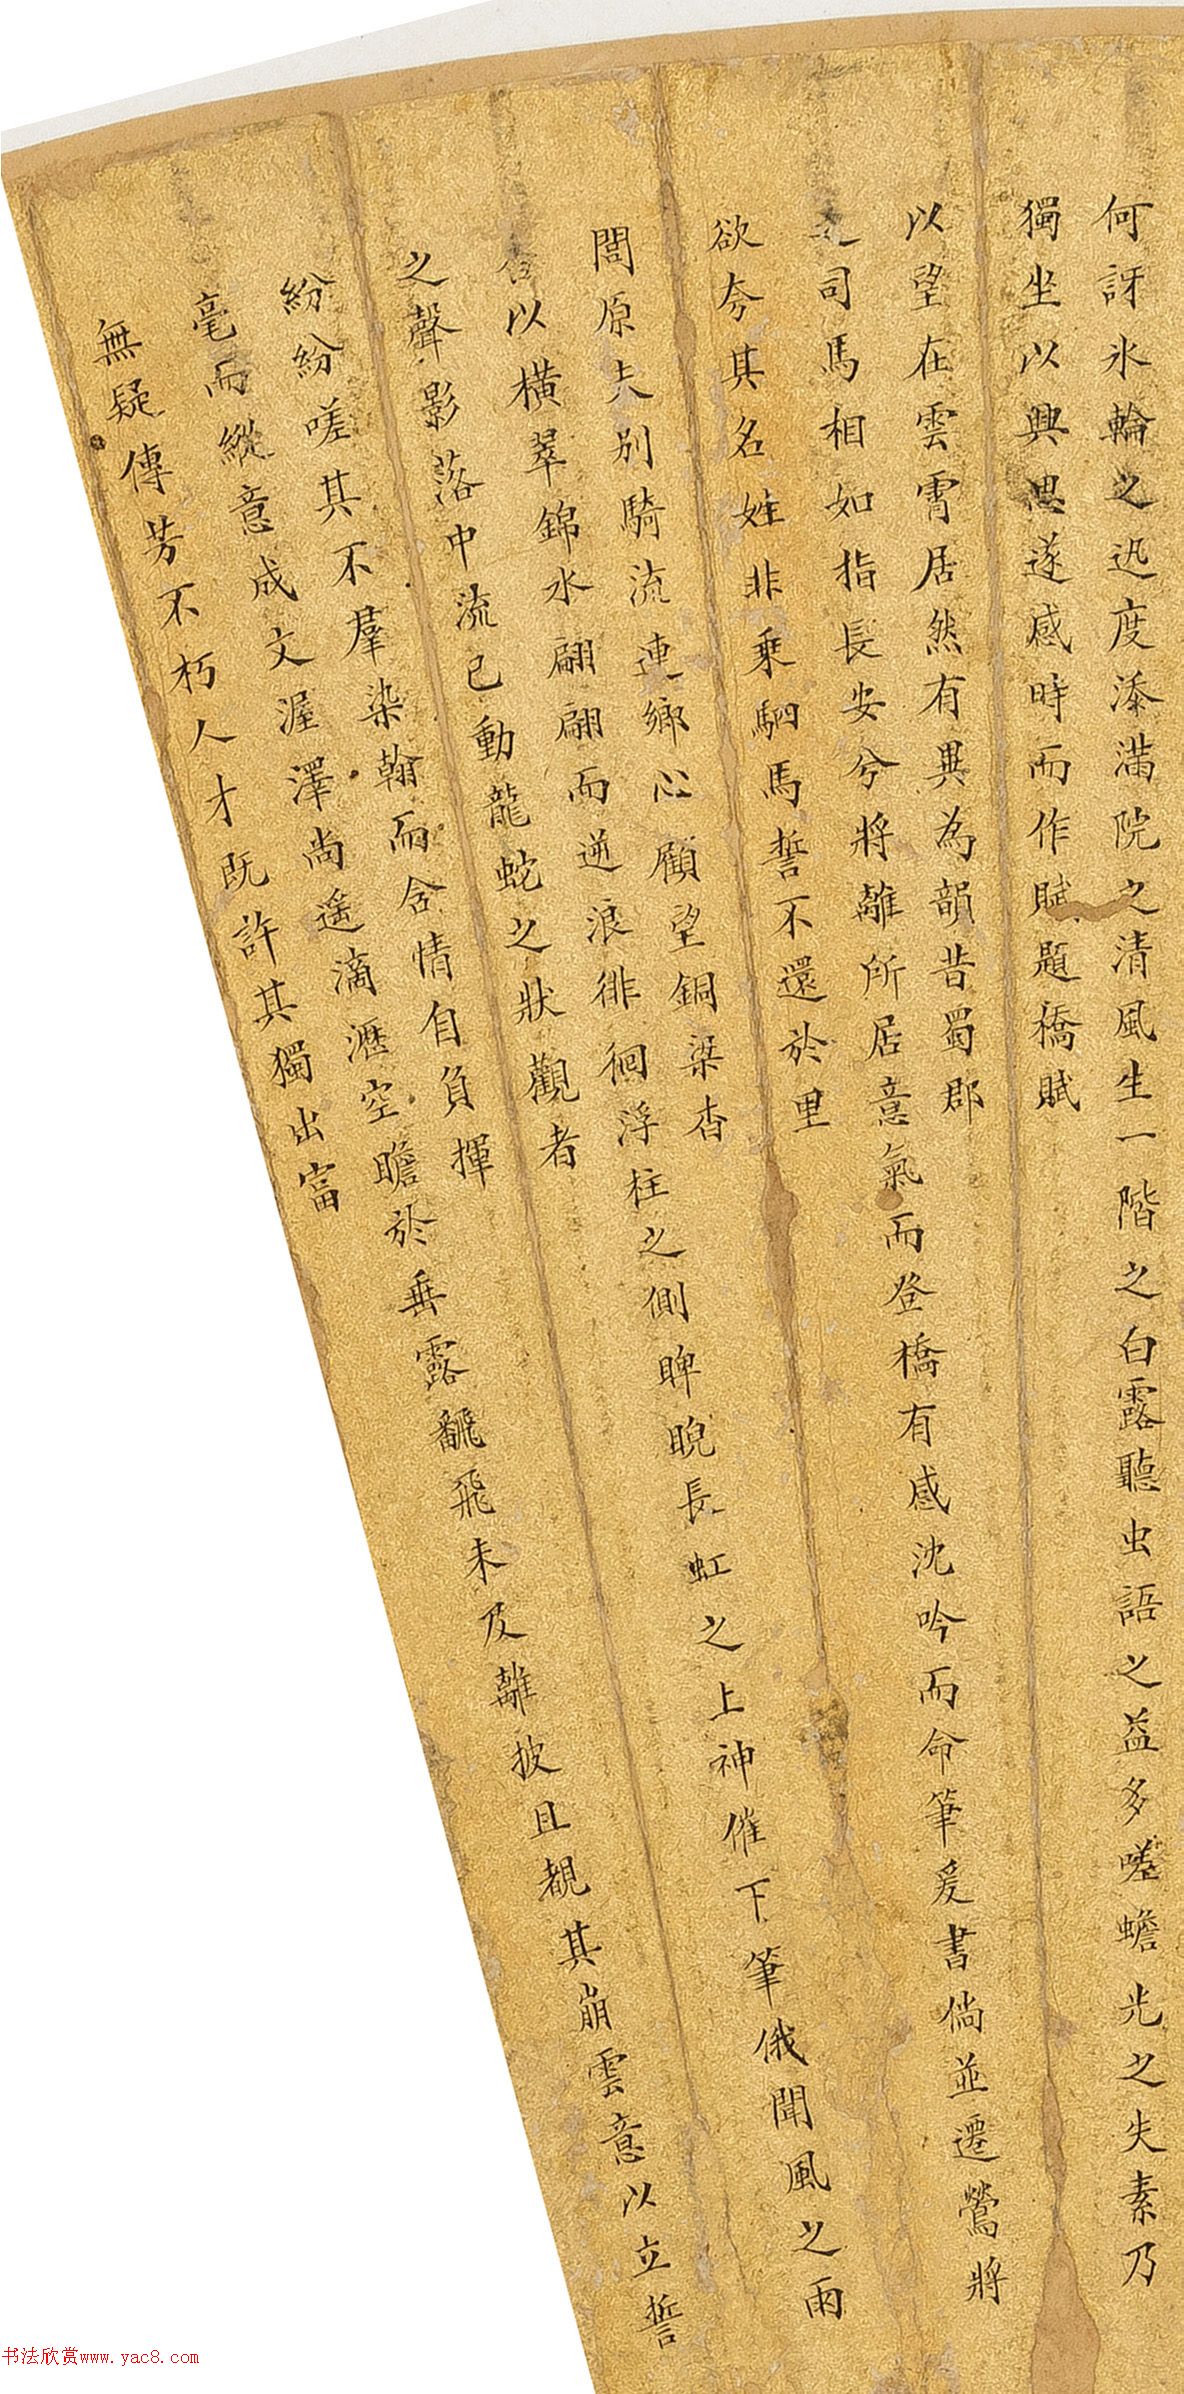 何訝氷輪之迅度添滿院之清風生一階之白露聽虫語之益多嗟蟾光之失素乃
獨坐以興思遂感時而作賦題橋賦
以望在雲霄居然有異為韻昔蜀郡
司馬相如指長安兮將離所居意氣而登橋有感沈吟而命筆爰書倘並遷鶯將
欲夸其名姓非乗駟馬誓不還於里
閭原夫別騎流連鄉心顧望銅梁杳
以橫翠錦水翩翩而逆浪徘徊浮柱之側睥睨長虹之上神催下筆俄聞風之雨
之聲影落中流已動龍蛇之狀觀者
紛紛嗟其不羣染翰而含情自負揮
毫而縱意成文渥澤尚遙滴瀝空瞻於垂露翩飛未及離披且覩其崩雲意以立誓
無疑傳芳不朽人才既許其獨出富
书法欣赏www.yac8.com